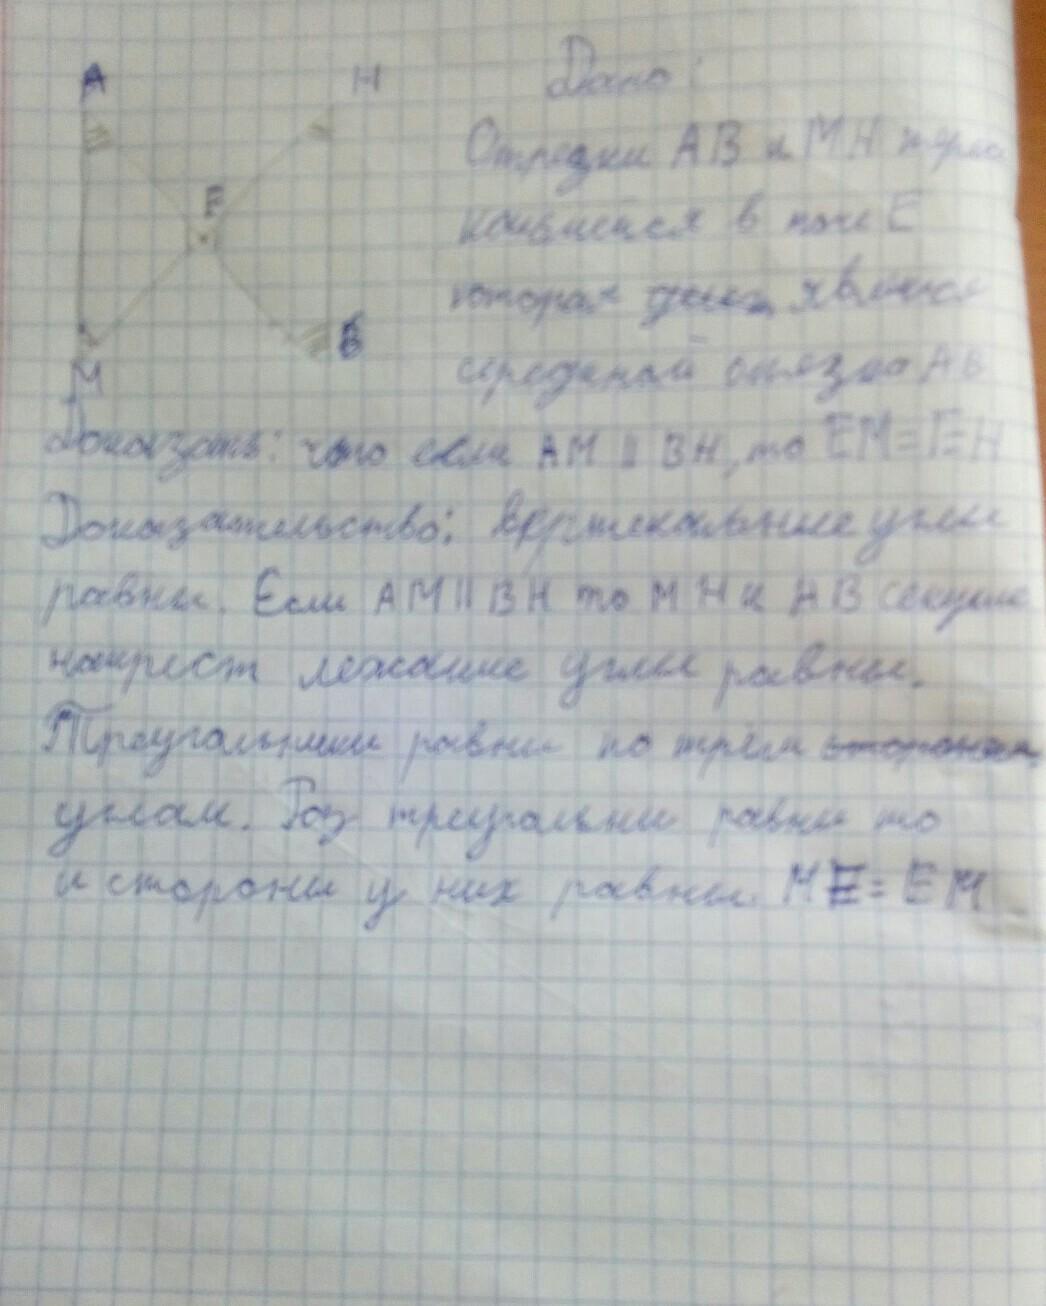 A
H
E
M
B
Дано:
Отрезки AB и MH
в точке E
которая
серединой AB
Доказать: что если AM || BH, то EM=EH
Доказательство: вертикальные углы
равны. Если AM || BH то MH и AB секущие
накрест лежащие углы равны.
Треугольники равны по трём
углам. Раз равны то
и стороны у них равны. ME=EM